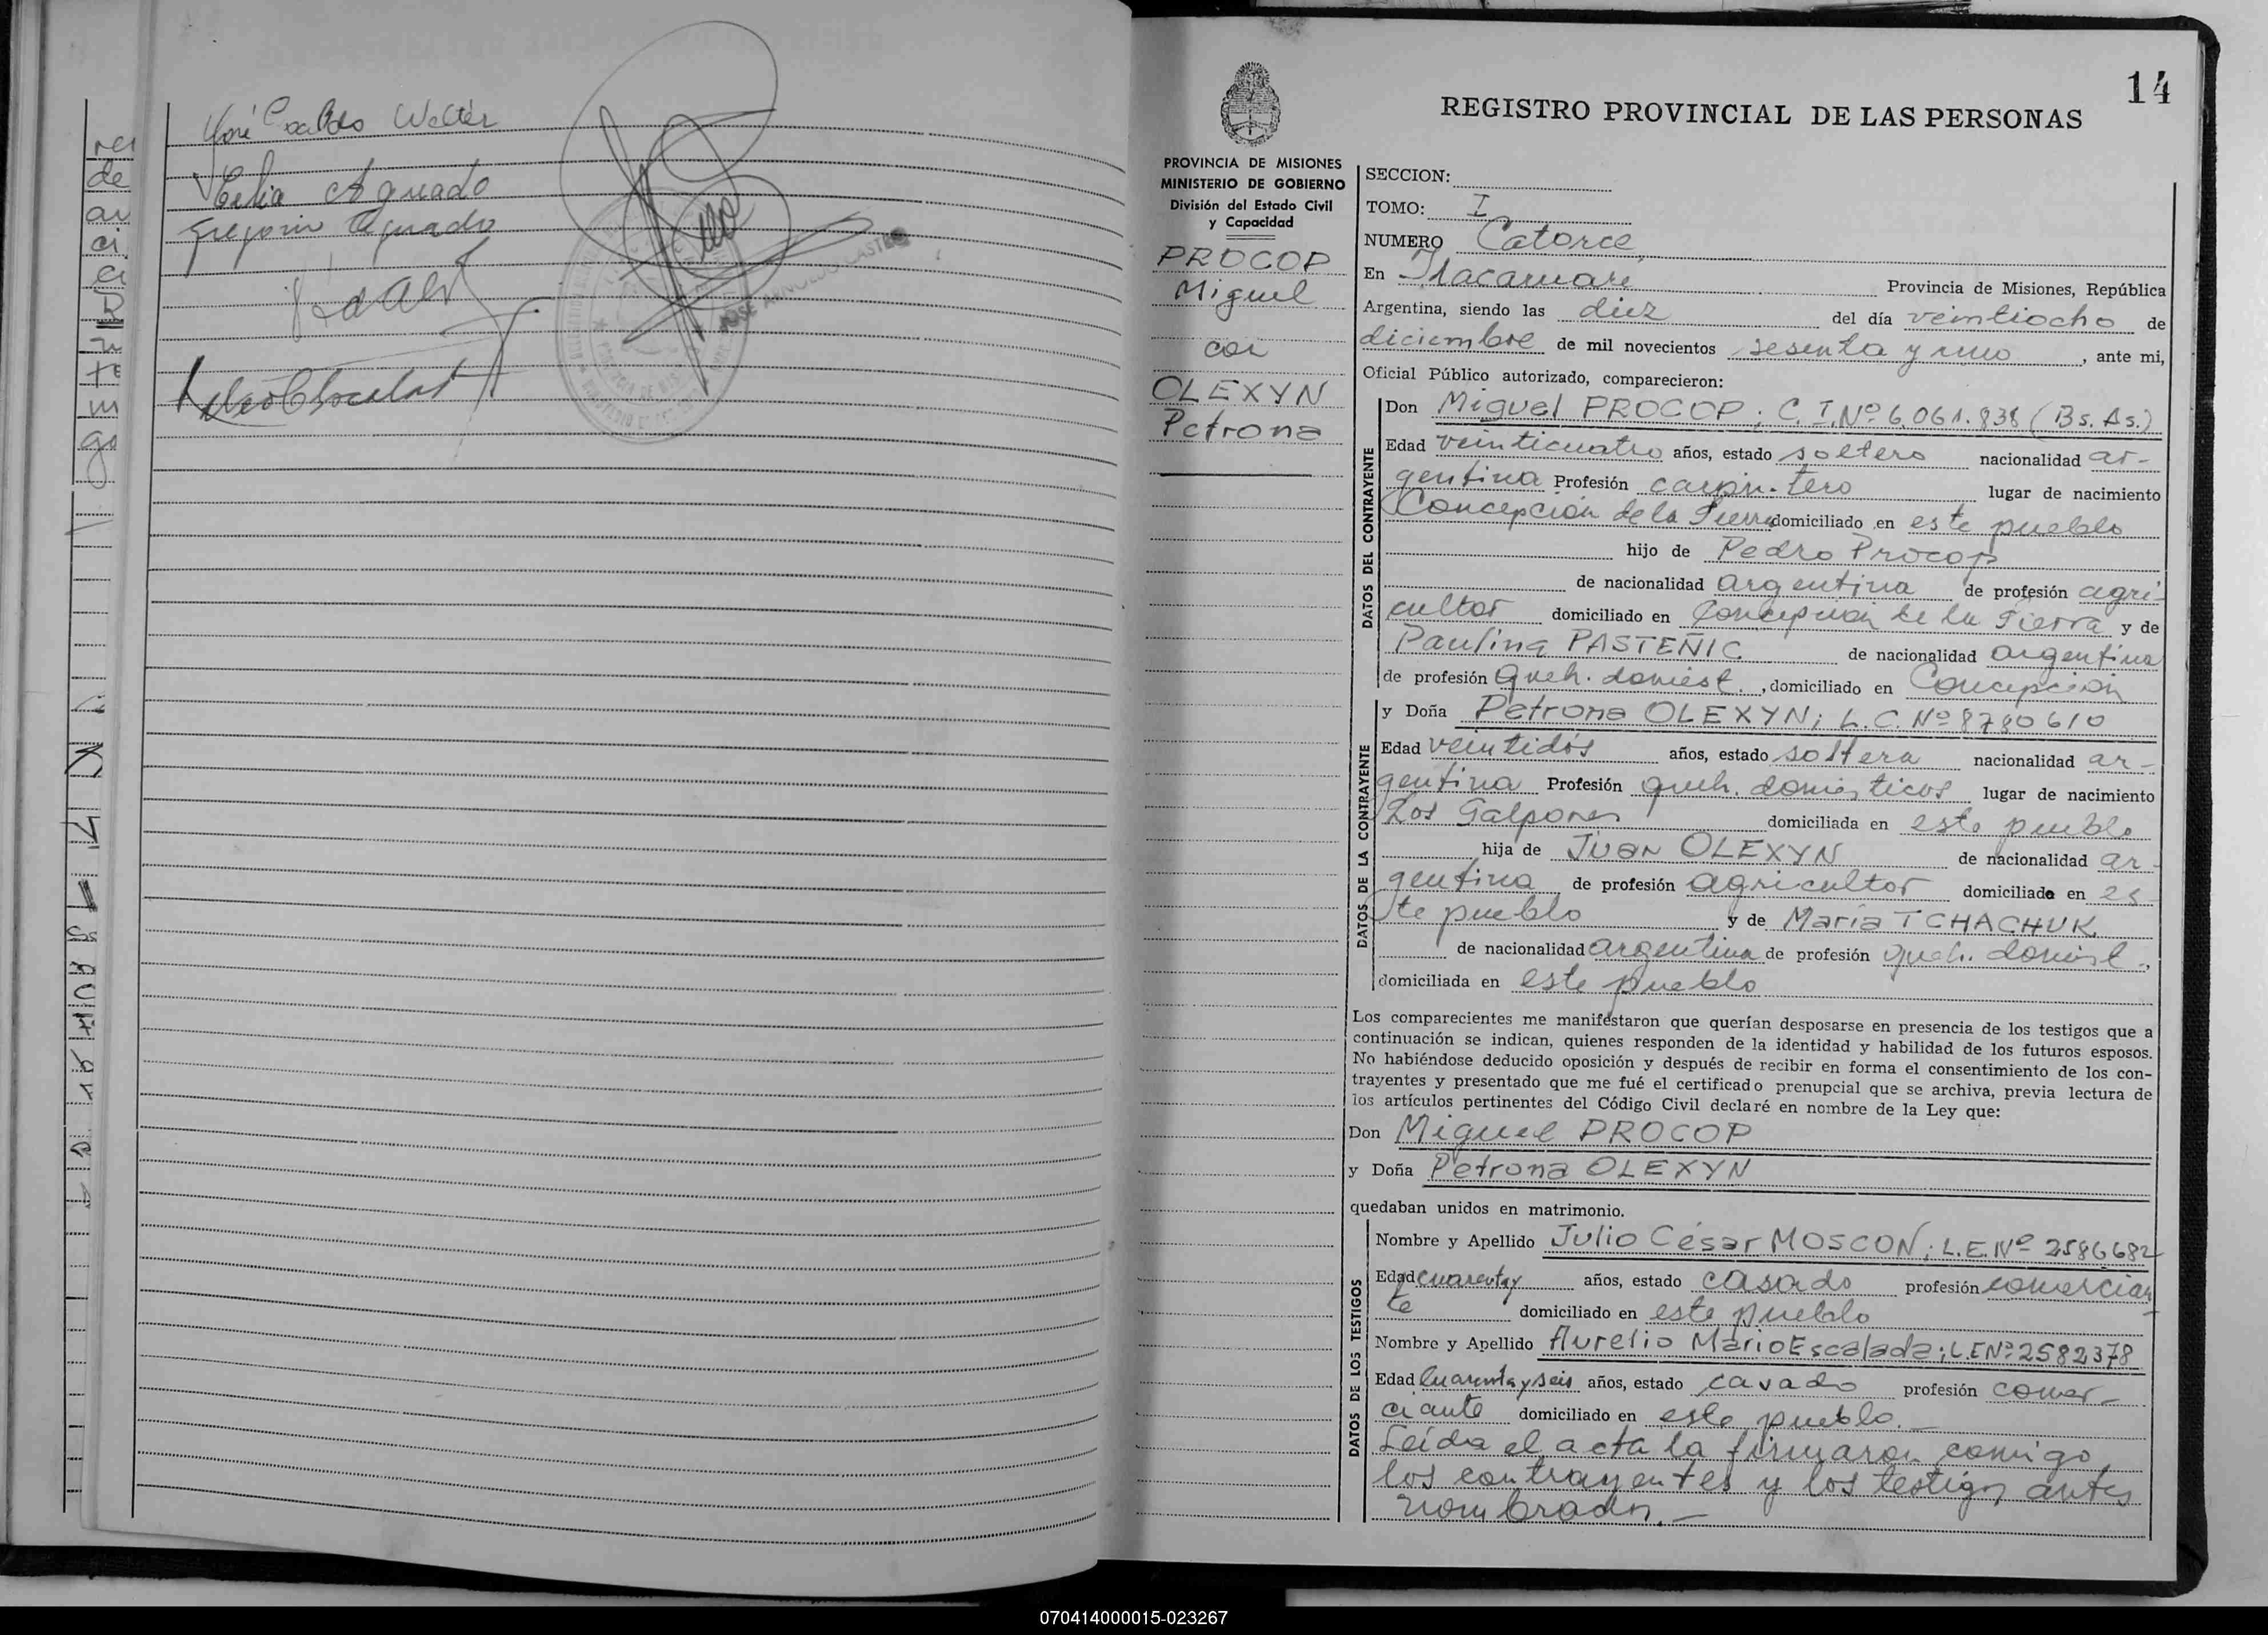 José Waldo Welter
Celia Aguado
Gregorio Aguado
14
REGISTRO PROVINCIAL DE LAS PERSONAS
PROVINCIA DE MISIONES
MINISTERIO DE GOBIERNO
División del Estado Civil
y Capacidad
PROCOP
Miguel
con
OLEXYN
Petrona
SECCION:
TOMO: I
NUMERO Catorce
En Itacaruaré Provincia de Misiones, República
Argentina, siendo las diez del día veintiocho de
diciembre de mil novecientos sesenta y uno, ante mi,
Oficial Público autorizado, comparecieron:
DATOS DEL CONTRAYENTE
Don Miguel PROCOP; C.I.Nº 6.061.838 (Bs. As.)
Edad veinticuatro años, estado soltero nacionalidad ar-
gentina Profesión carpintero lugar de nacimiento
Concepción de la Sierra domiciliado en este pueblo
hijo de Pedro Procop
de nacionalidad argentina de profesión agri-
cultor domiciliado en Concepción de la Sierra y de
Paulina PASTEÑIC de nacionalidad argentina
de profesión queh. domést., domiciliado en Concepción
DATOS DE LA CONTRAYENTE
y Doña Petrona OLEXYN; L.C. Nº 8780610
Edad veintidós años, estado soltera nacionalidad ar-
gentina Profesión queh. domésticos lugar de nacimiento
Los Galpones domiciliada en este pueblo
hija de Juan OLEXYN de nacionalidad ar-
gentina de profesión agricultor domiciliado en es-
te pueblo y de María TCHACHUK
de nacionalidad argentina de profesión queh. domést.,
domiciliada en este pueblo
Los comparecientes me manifestaron que querían desposarse en presencia de los testigos que a
continuación se indican, quienes responden de la identidad y habilidad de los futuros esposos.
No habiéndose deducido oposición y después de recibir en forma el consentimiento de los con-
trayentes y presentado que me fué el certificado prenupcial que se archiva, previa lectura de
los artículos pertinentes del Código Civil declaré en nombre de la Ley que:
Don Miguel PROCOP
y Doña Petrona OLEXYN
quedaban unidos en matrimonio.
DATOS DE LOS TESTIGOS
Nombre y Apellido Julio César MOSCON; L.E. Nº 2586682
Edad cuarenta y años, estado casado profesión comercian
te domiciliado en este pueblo
Nombre y Apellido Aurelio Mario Escalada; L.E Nº 2582378
Edad cuarenta y seis años, estado casado profesión comer-
ciante domiciliado en este pueblo.—
Leída el acta la firmaron comigo
los contrayentes y los testigos antes
nombrados.—
070414000015-023267